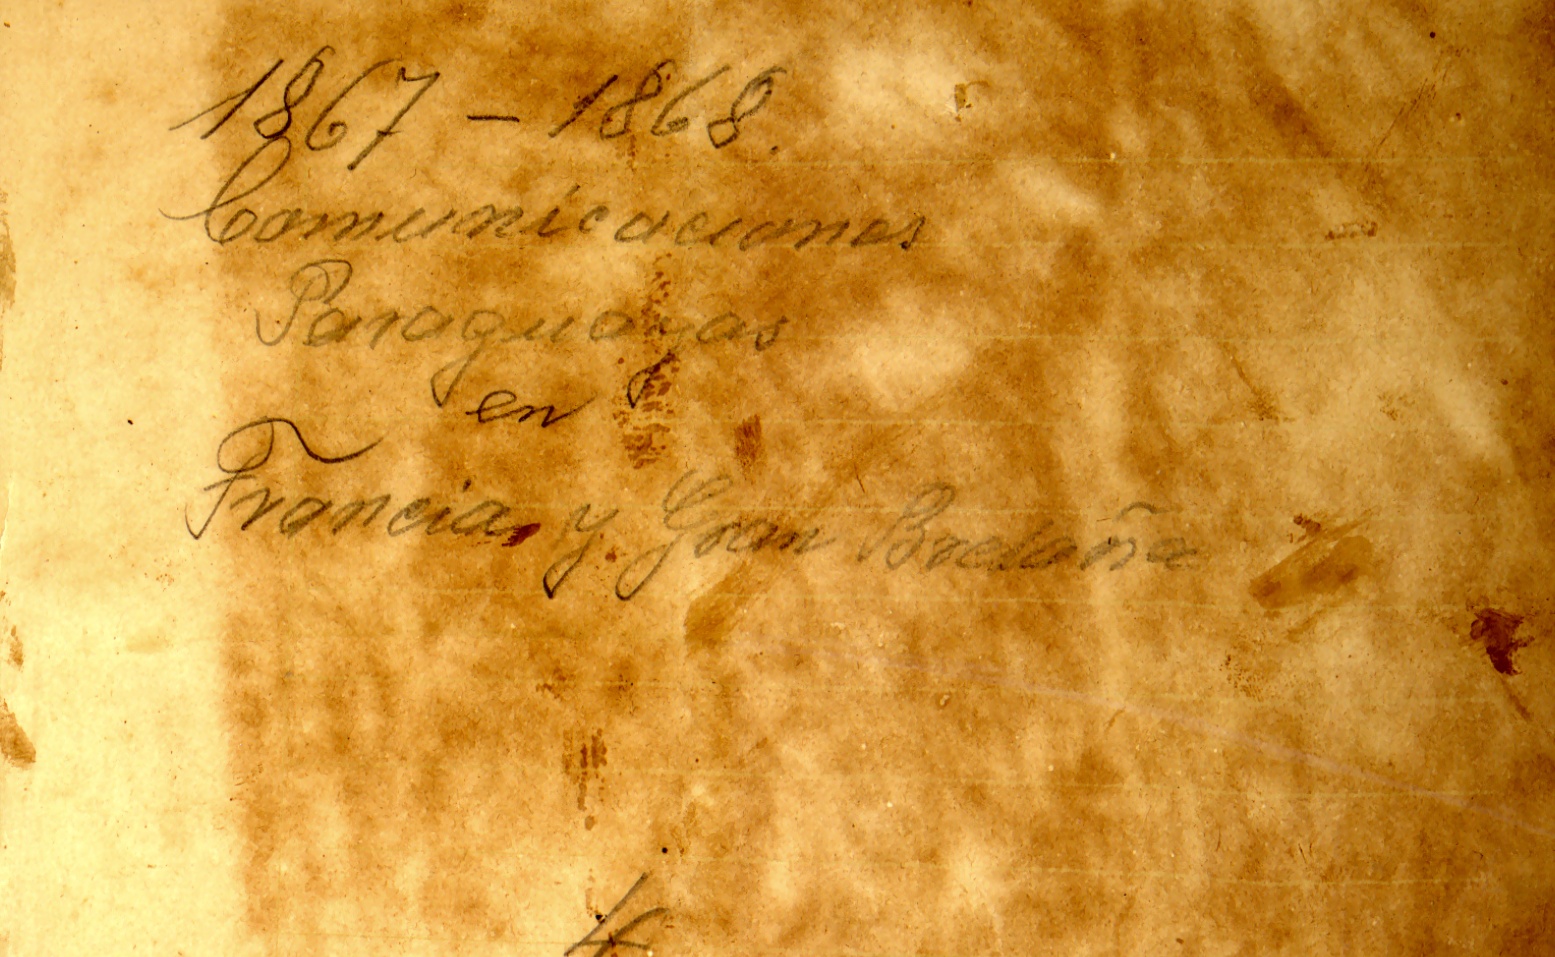 1867 – 1868.
Comunicaciones
Paraguayas
en
Francia y Gran Bretaña